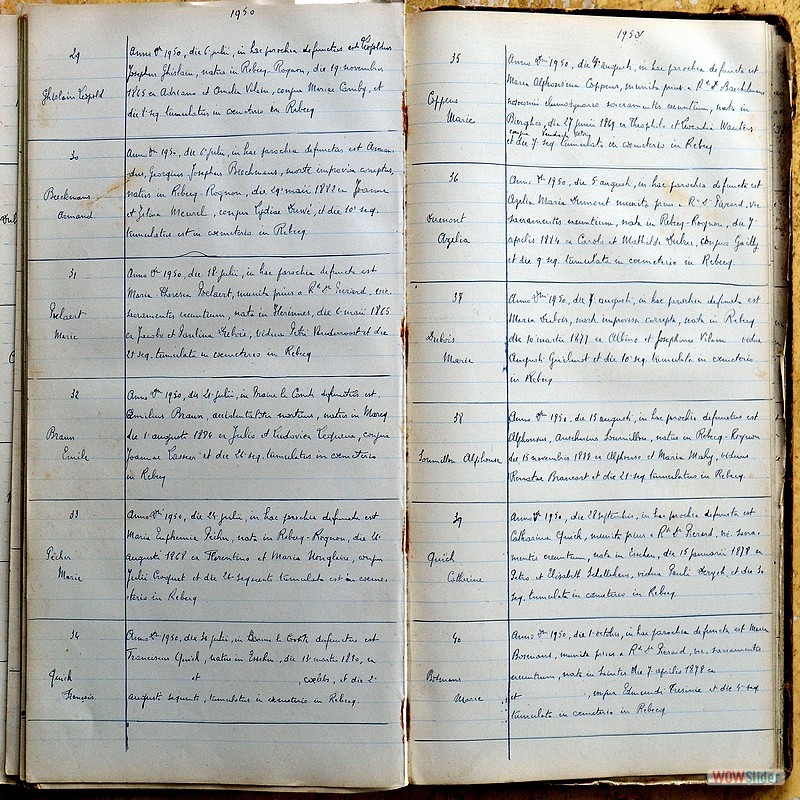 1950
29
Ghislain Léopold
Anno Dni 1950, die 6 julii, in hac parochia defunctus est Leopoldus
Josephus Ghislain, natus in Rebecq-Rognon, die 19 novembris
1865 ex Adriano et Amelia Vilain, conjux Mariae et
die 8 seq. tumulatus in cemeterio in Rebecq
30
Beeckmans
Armand
Anno Dni 1950, die 6 julii, in hac parochia defunctus est Arman-
dus, Georgius Josephus Beeckmans, morte improvisa correptus,
natus in Rebecq Rognon, die 29 maii 1882 ex Joanne
et Meurel, conjux Lydiae et die 10 seq.
tumulatus est in cemeterio in Rebecq
31
Marie
Anno Dni 1950, die 18 julii, in hac parochia defuncta est
Maria Theresia munita prius a Rdo Do Pierard, vic.
sacramentis exeuntium, nata in Herinnes, die 6 maii 1865
ex Jacobo et Paulina vidua Petri Vanderoost et die
21 seq. tumulata in cemeterio in Rebecq
32
Braun
Emile
Anno Dni 1950, die 21 julii, in Braine le Comte defunctus est
Emilius Braun, accidentaliter mortuus, natus in Marcq
die 1 augusti 1894 ex Julio et Ludovica conjux
Joannae et die 24 seq. tumulatus in cemeterio
in Rebecq
33
Marie
Anno Dni 1950, die 24 julii, in hac parochia defuncta est
Maria Euphemia nata in Rebecq-Rognon, die 4
augusti 1868 ex Florentino et Maria conjux
Julii Croquet et die seq tumulata est in ceme-
terio in Rebecq
34
Quick
François
Anno Dni 1950, die 30 julii, in Braine le Comte defunctus est
Franciscus Quick, natus in Esschen, die 18 martii 1880, ex
et coelebs, et die 2
augusti sequenti, tumulatus in cemeterio in Rebecq.
1950
35
Coppens
Marie
Anno Dni 1950, die augusti, in hac parochia defuncta est
Maria Alphonsina Coppens, munita prius a Rdo Do
sacramentis exeuntium, nata in
Bierghes, die 27 junii 1869 ex Theophilo et Leocadia Wauters
conjux
et die 7 seq. tumulata in cemeterio in Rebecq
36
Dumont
Azelia
Anno Dni 1950, die 5 augusti, in hac parochia defuncta est
Azelia Maria Dumont munita prius a Rdo Do Pierard, vic.
sacramentis exeuntium, nata in Rebecq-Rognon, die 7
aprilis 1884 ex Carolo et Mathilde conjux
et die 9 seq. tumulata in cemeterio in Rebecq.
37
Dubois
Marie
Anno Dni 1950, die 7 augusti, in hac parochia defuncta est
Maria Dubois, morte improvisa correpta, nata in Rebecq
die 10 martii 1877 ex Albino et Josephina Vilain vidua
Augusti et die 10 seq. tumulata in cemeterio
in Rebecq
38
Alphonse
Anno Dni 1950, die 18 augusti, in hac parochia defunctus est
Alphonsus, natus in Rebecq-Rognon
die 15 novembris 1888 ex Alphonso et Maria Mahy, viduus
et die 21 seq. tumulatus in cemeterio in Rebecq.
39
Quick
Catherine
Anno Dni 1950, die 28 septembris, in hac parochia defuncta est
Catharina Quick, munita prius a Rdo Do Pierard, vic. sacra-
mentis exeuntium, nata in Esschen, die 15 januarii 1878 ex
Petro et Elisabeth vidua Pauli et die 30
seq. tumulata in cemeterio in Rebecq.
40
Bosmans
Marie
Anno Dni 1950, die 1 octobris, in hac parochia defuncta est Maria
Bosmans, munita prius a Rdo Do Pierard, vic. sacramentis
exeuntium, nata in Saintes die 7 aprilis 1872 ex
et , conjux Edmundi et die 4 seq
tumulata in cemeterio in Rebecq
WOWSlider